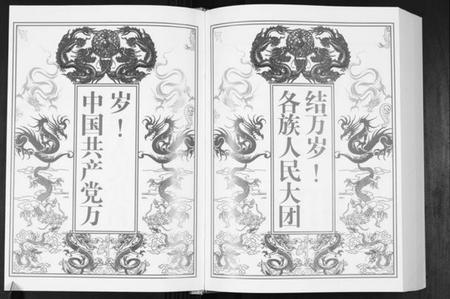 各族人民大团
结万岁！
中国共产党万
岁！